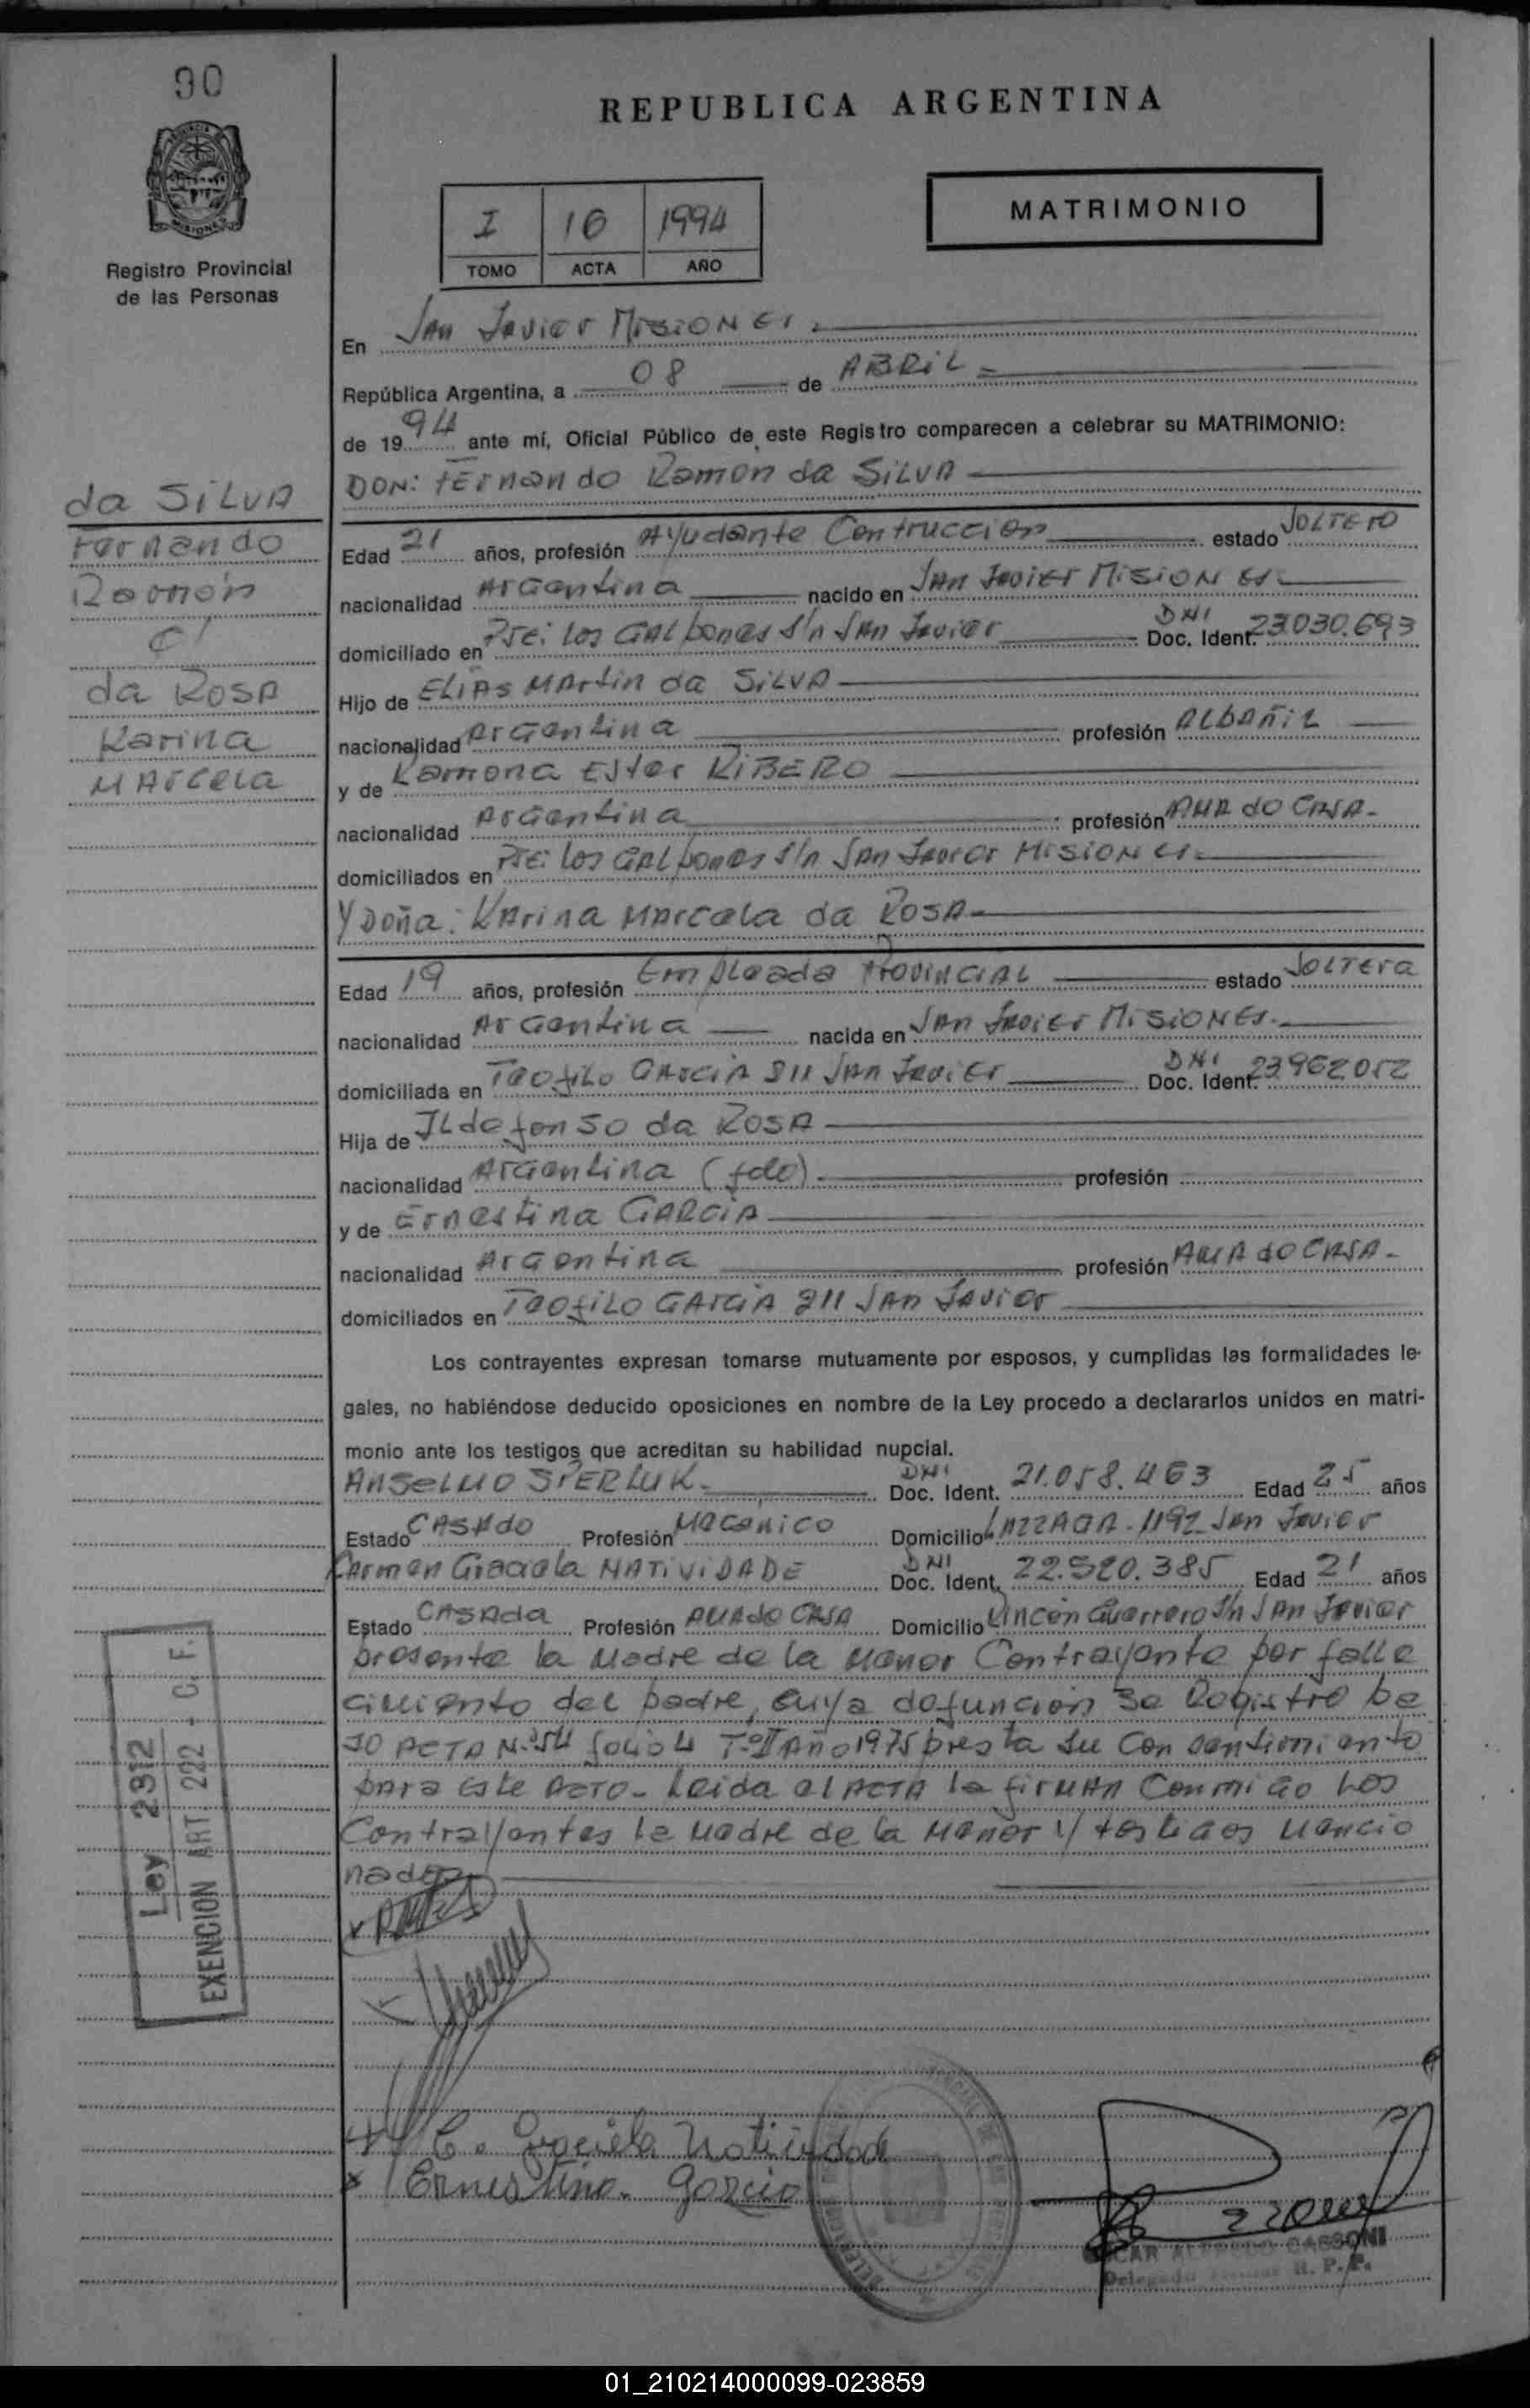 90
REPUBLICA ARGENTINA
MATRIMONIO
I 16 1994
TOMO ACTA AÑO
Registro Provincial
de las Personas
En San Javier Misiones.
República Argentina, a 08 de ABRiL
de 1994 ante mí, Oficial Público de este Registro comparecen a celebrar su MATRIMONIO:
DON: FErnando Ramon da SiLVA
da SiLVA
Fernando
Ramón
c/
da ROSA
Karina
MArcela
Edad 21 años, profesión Ayudante Contruccion estado SOLTErO
nacionalidad Argentina nacido en SAn Javier MiSiONEs
domiciliado en Pje: los GALpones s/n SAn Javier DNI Doc. Ident. 23.030.693
Hijo de ELiAs MArtin da SiLVA
nacionalidad Argentina profesión ALbAñiL
y de Ramona Ester RiBERO
nacionalidad Argentina profesión AMA de CASA-
domiciliados en Pje: los GALpones s/n SAn Javier MiSiONEs
Y Doña: KArina MArcela da ROSA-
Edad 19 años, profesión Empleada ProvinciAL estado SOLTEra
nacionalidad Argentina nacida en SAn Javier MiSiONEs.
domiciliada en Teofilo GArciA 811 SAn Javier DNI Doc. Ident. 23962052
Hija de ILdefonso da ROSA
nacionalidad Argentina (fdo) profesión
y de Ernestina GARCiA
nacionalidad Argentina profesión AMA de CASA-
domiciliados en Teofilo GArciA 811 SAn Javier
Los contrayentes expresan tomarse mutuamente por esposos, y cumplidas las formalidades le-
gales, no habiéndose deducido oposiciones en nombre de la Ley procedo a declararlos unidos en matri-
monio ante los testigos que acreditan su habilidad nupcial.
ANSELMO SPERLUK. DNI Doc. Ident. 21.058.463 Edad 25 años
Estado CASAdo Profesión Mecanico Domicilio LAZZAGA-1192 San Javier
Carmen Graciela NATiViDADE DNI Doc. Ident. 22.520.385 Edad 21 años
Estado CASAda Profesión AMA de CASA Domicilio Rincon Guerrero s/n SAn Javier
presente la Madre de la Menor Contrayente por falle
cimiento del padre, cuya defunción se Registro ba
JO ACTA N.º 54 folio 4 Tº II Año 1975 presta su Consentimiento
para este Acto- Leida el ACTA la firMAn Conmigo Los
Contrayentes la Madre de la Menor y testigos Mencio
nados
Ley 2312
EXENCION ART. 222 - C. F.
C. Graciela Natividade
Ernestina. Garcia
OSCAR ALFREDO CASSONI
R. P. P.
01_210214000099-023859